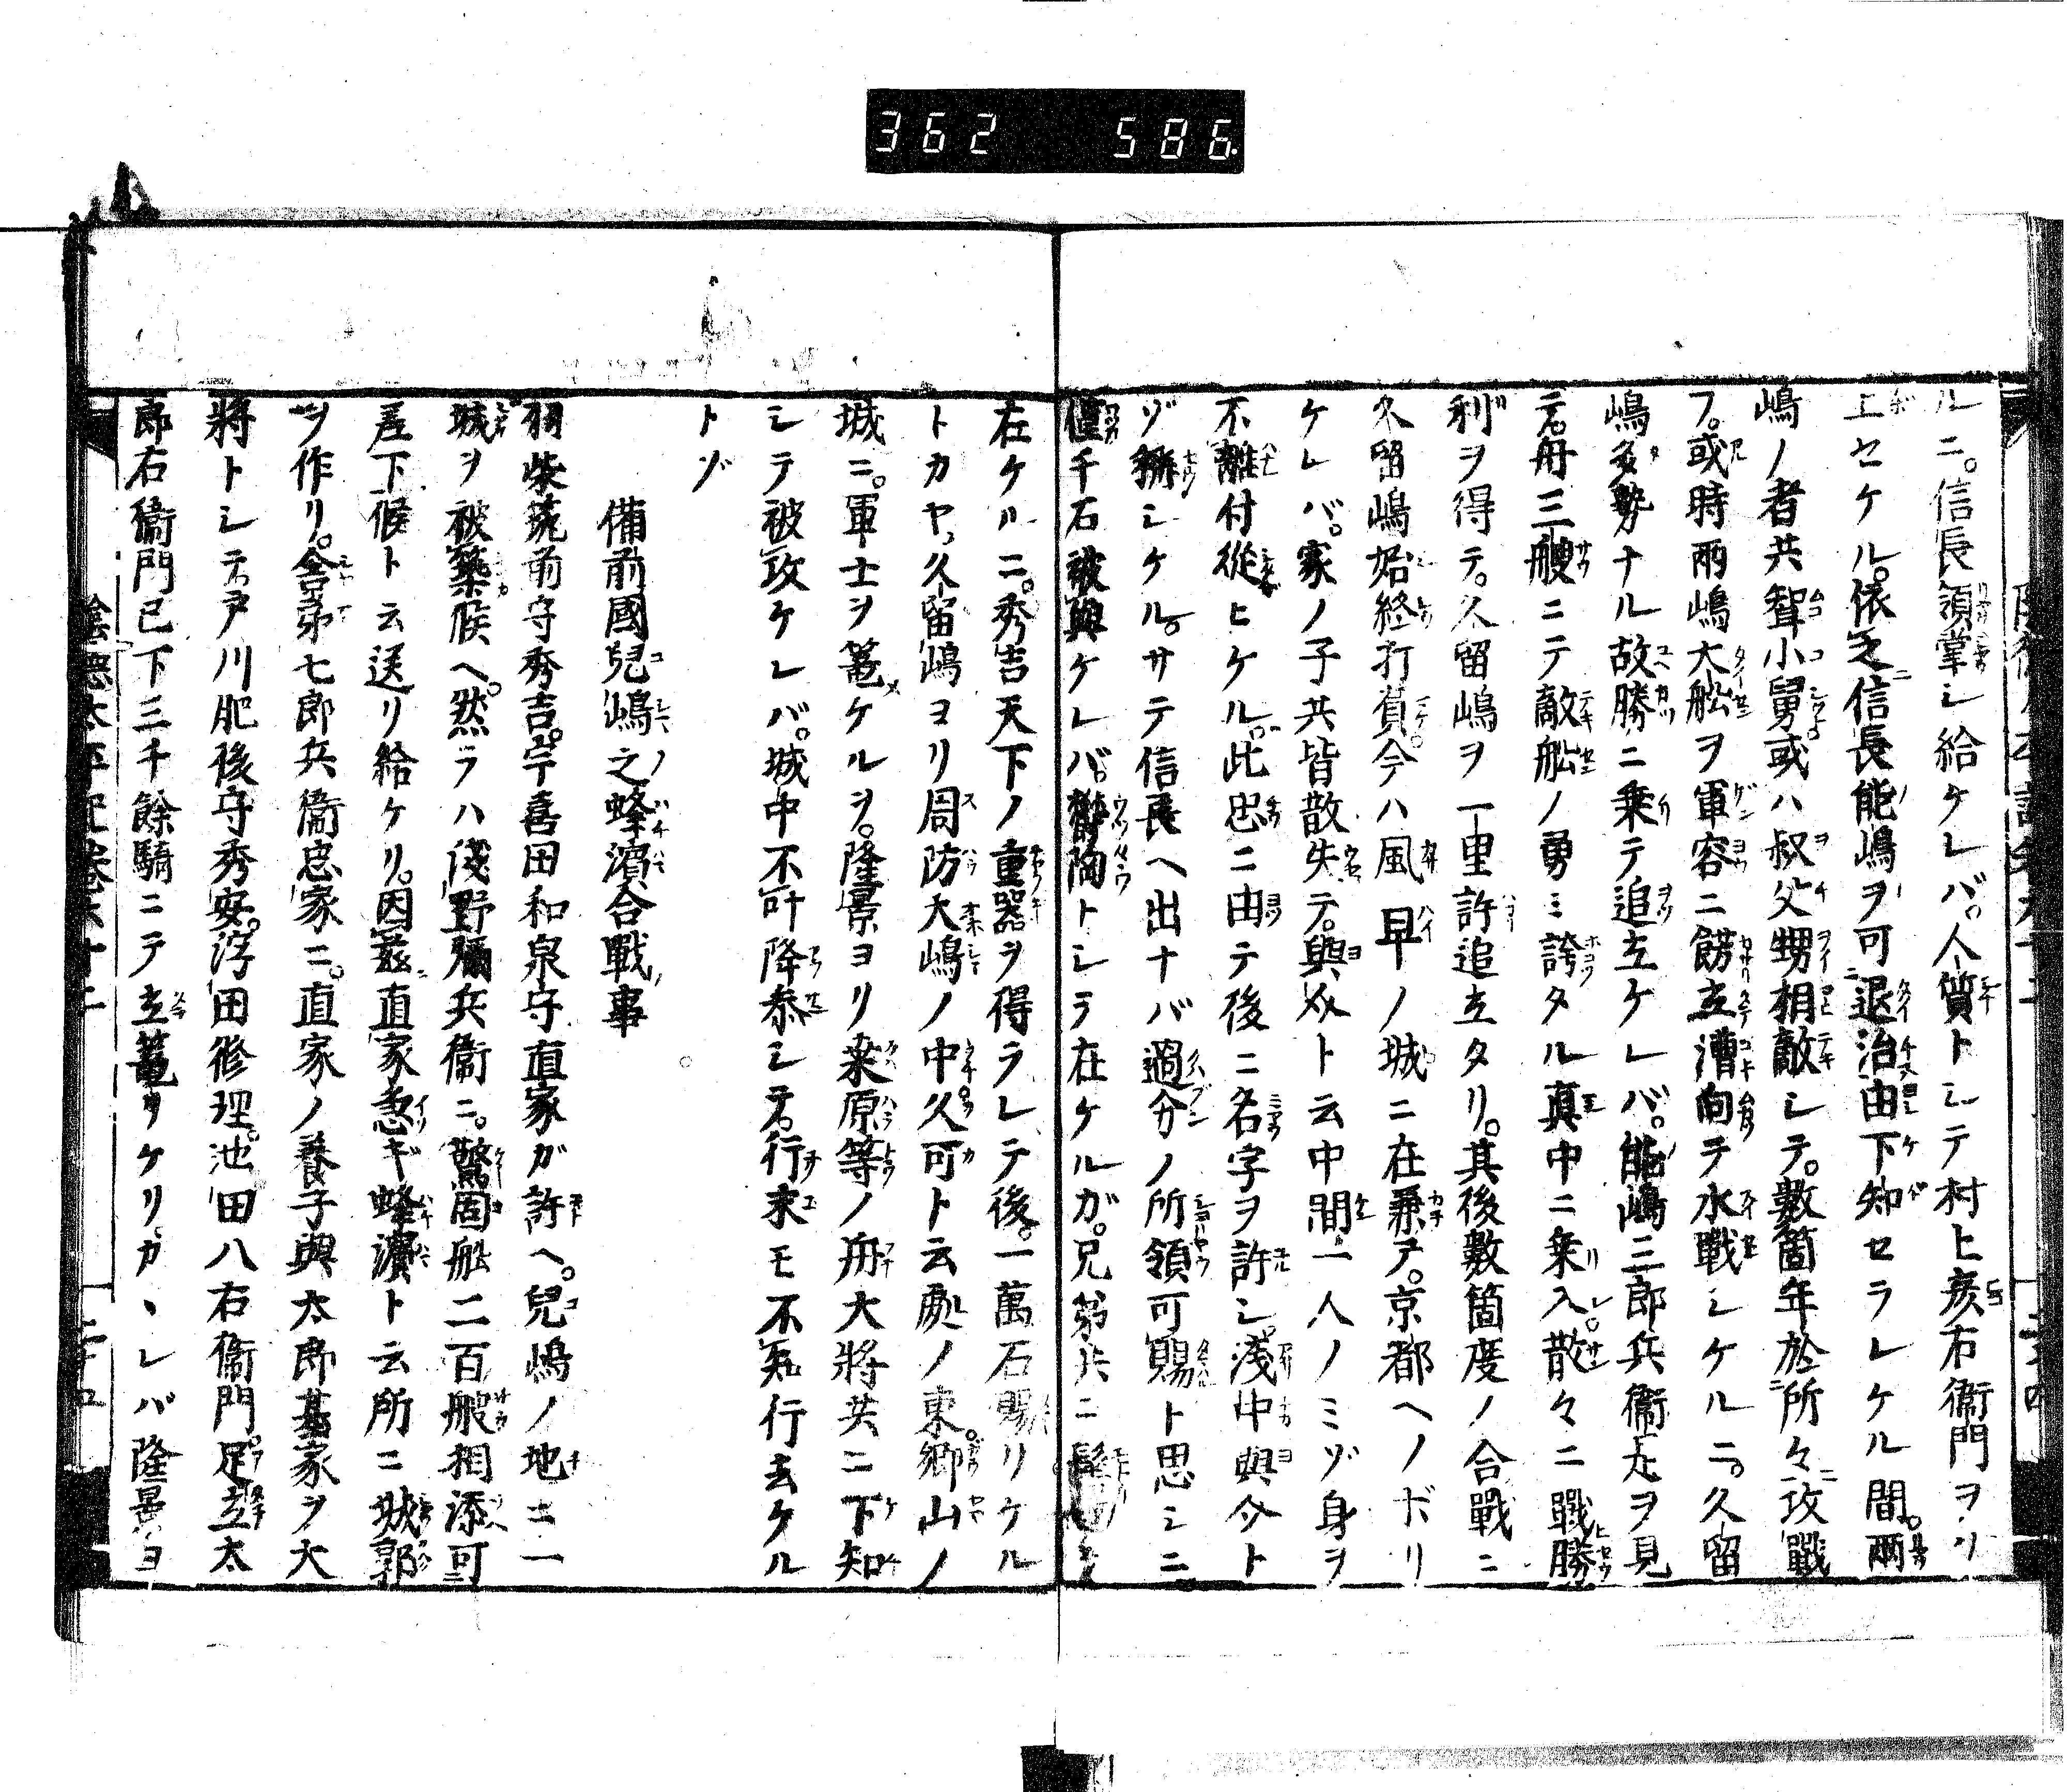 362 586
ルニ。信長領掌シ給ケレバ。人質トシテ村上彦右衞門ヲノ
ボセケル。依之信長能嶋ヲ可退治由下知セラレケル間。兩
嶋ノ者共聟小舅或ハ叔父甥相敵シテ。數箇年於所々攻戰
フ。或時兩嶋大舩ヲ軍容ニ餝立漕向テ水戰シケルニ。久留
嶋多勢ナル故勝ニ乗テ追立ケレバ。能嶋三郎兵衞尉ヲ見
テ。舟三艘ニテ敵舩ノ勇ミ誇タル真中ニ乗入散々ニ戰勝
利ヲ得テ。久留嶋ヲ一里許追立タリ。其後數箇度ノ合戰ニ
久留嶋始終打負今ハ風早ノ城ニ在兼テ。京都ヘノボリ
ケレバ。家ノ子共皆散失テ。與介ト云中間一人ノミゾ身ヲ
不離付從ヒケル。此忠ニ由テ後ニ名字ヲ許シ。淺中與介ト
ゾ稱シケル。サテ信長ヘ出ナバ過分ノ所領可賜ト思シニ
僅千石被與ケレバ。欝陶トシテ在ケルガ。兄弟共ニ
在ケルニ。秀吉天下ノ重器ヲ得ラレテ後。一萬石賜リケル
トカヤ。久留嶋ヨリ周防大嶋ノ中久可ト云處ノ東。郷山ノ
城ニ。軍士ヲ篭ケルヲ。隆景ヨリ桒原等ノ舟大將共ニ下知
シテ被攻ケレバ。城中不叶降参シテ。行末モ不知行去ケル
トゾ
備前國兒嶋之蜂濵合戰事
羽柴筑前守秀吉。宇喜田和泉守直家が許ヘ。兒嶋ノ地ニ一
城ヲ被築候ヘ。然ラハ淺野彌兵衞ニ。警固舩二百艘相添可
差下候ト云送リ給ケリ。因茲直家急ギ蜂濵ト云所ニ城郭
ヲ作リ。舎弟七郎兵衞忠家ニ。直家ノ養子與太郎基家ヲ大
將トシテ。戸川肥後守秀安。浮田修理。池田八右衞門。足立太
郎右衞門已下三千餘騎ニテ立篭リケリ。カヽレバ隆景ヨ
陰德太平記巻六十二